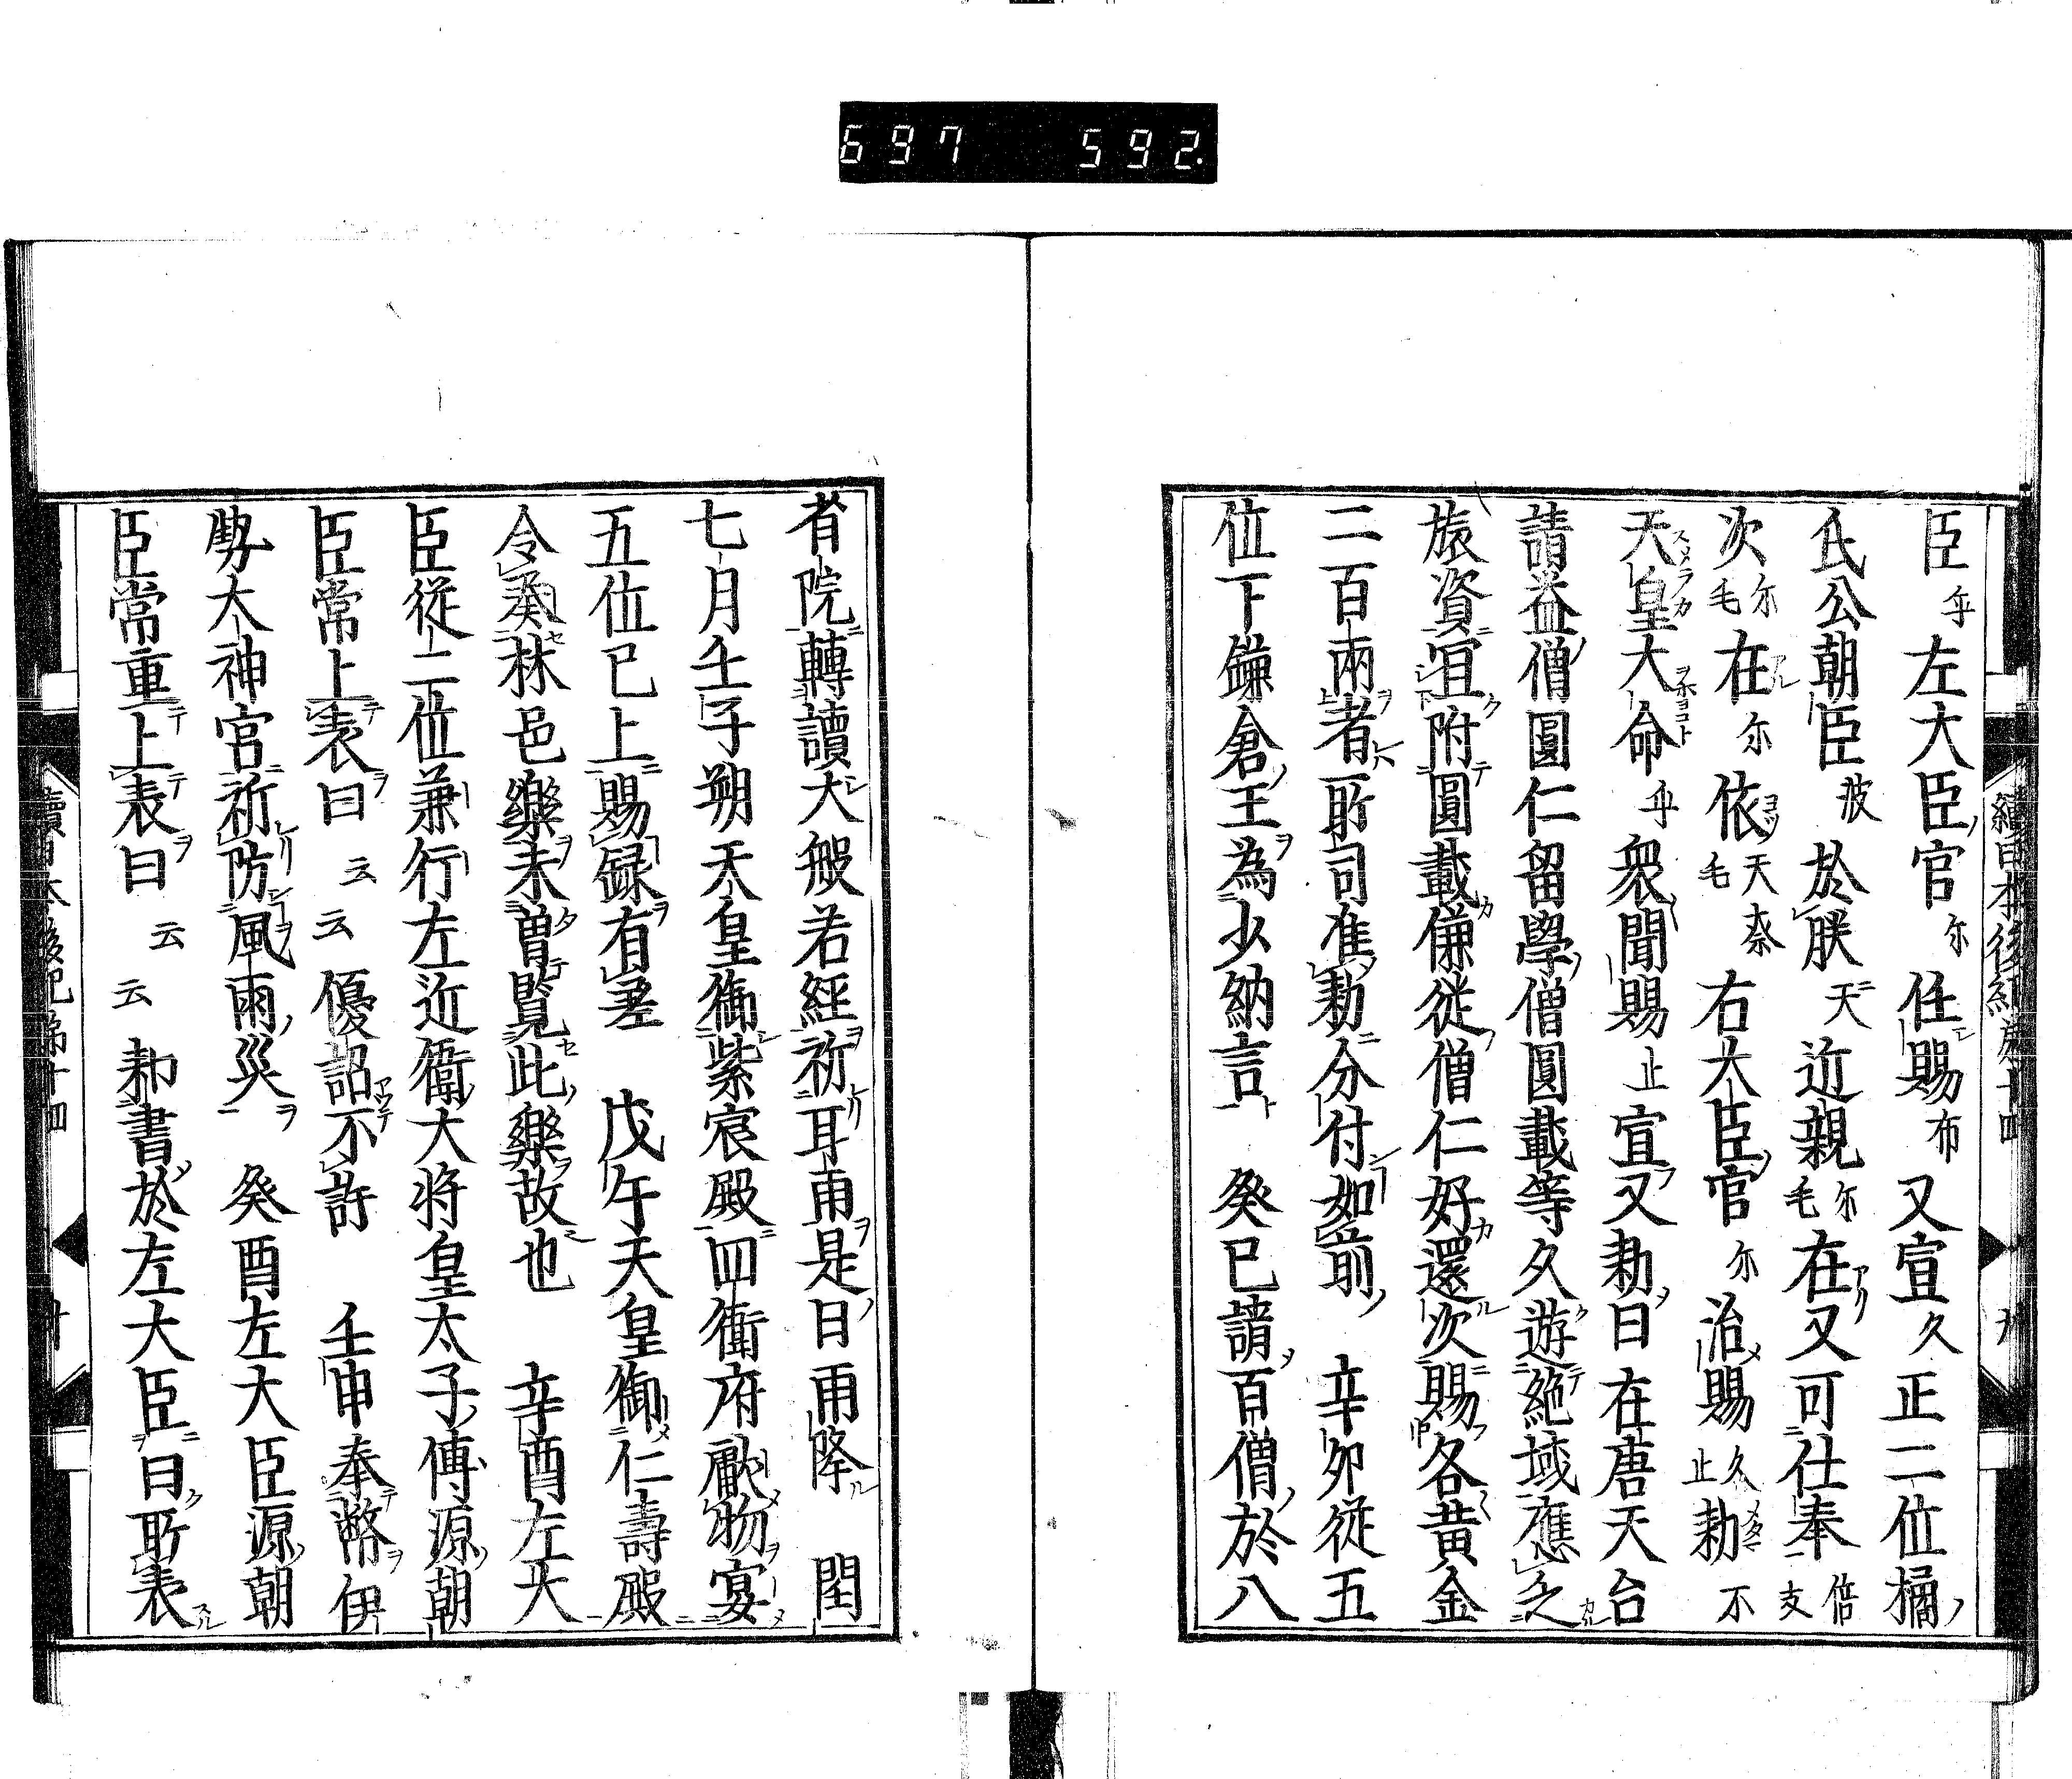 697 592.
續日本後紀 十四 九
臣乎左大臣官尓任賜布又宣久正二位橘
氏公朝臣波於朕天近親尓毛在又可仕奉倍支
次尓毛在尓依天毛奈右大臣官尓治賜久止勅不
天皇大命乎衆聞賜止宣又勅曰在唐天台
請益僧圓仁留學僧圓載等久遊絶域應乏
旅資宜附圓載傔從僧仁好還次賜各黄金
二百兩者所司准勅分付如前 辛卯從五
位下鎌倉王為少納言 癸巳請百僧於八
省院轉讀大般若經祈甘雨是日雨降 閏
七月壬子朔天皇御紫宸殿四衛府獻物宴
五位已上賜録有差 戊午天皇御仁壽殿
令奏林邑樂未曾覧此樂故也 辛酉左大
臣從二位兼行左近衛大將皇太子傅源朝
臣常上表曰云云優詔不許 壬申奉幣伊
勢大神宮祈防風雨災 癸酉左大臣源朝
臣常重上表曰云云勅書於左大臣曰所表
續日本後紀 十四 十